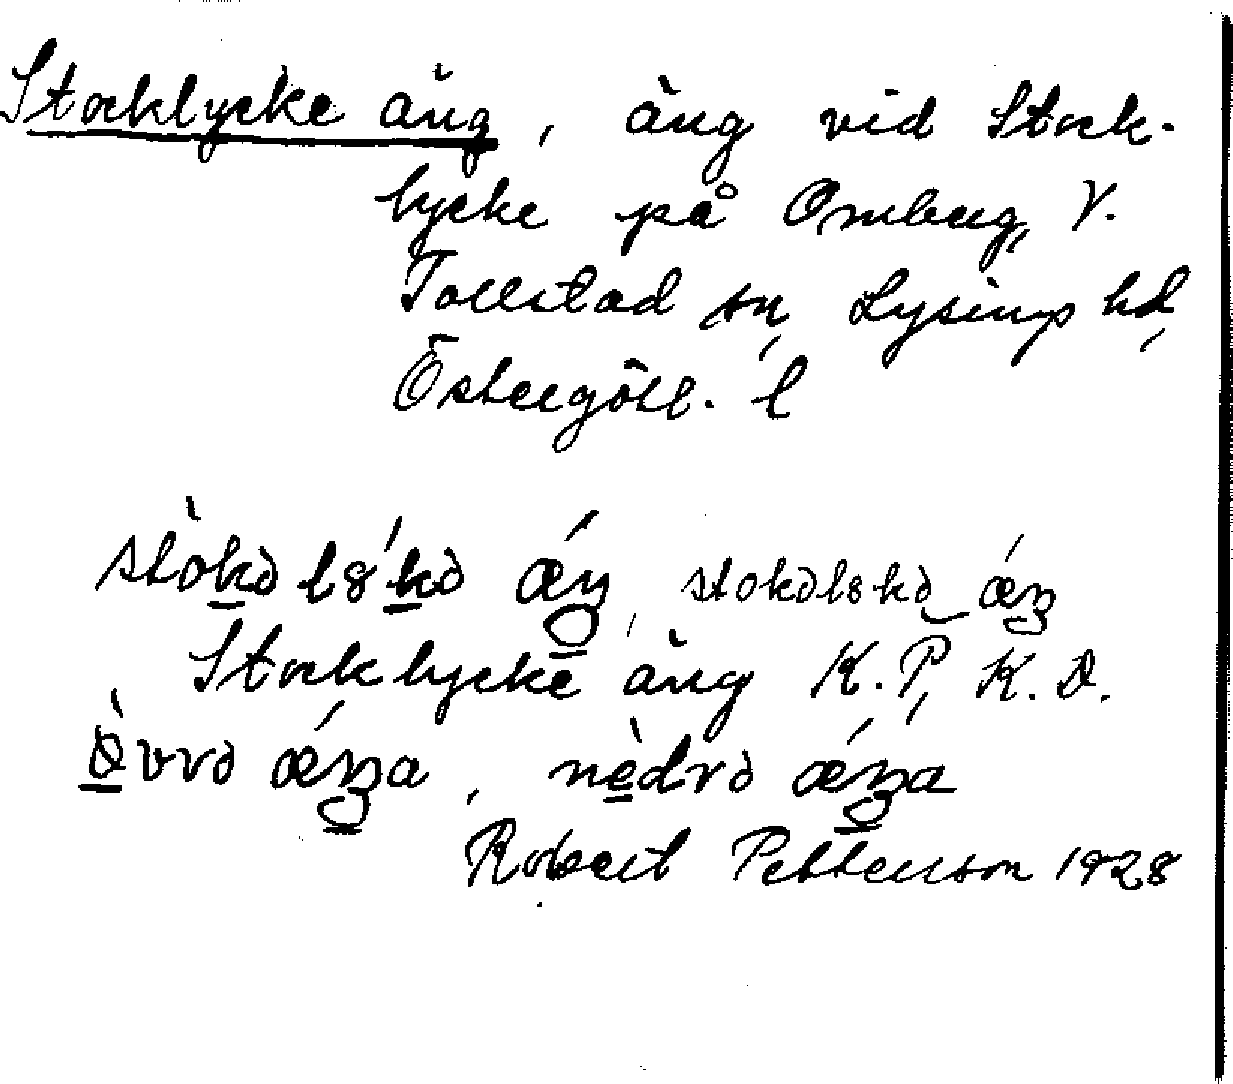 Stocklycke äng, äng vid Stock-
lycke på Omberg, V.
Tollstad sn, Lysings hd,
Östergötl. l
stòkəl8́kə ǽŋ, stokəl8kə ǽŋ
Stocklycke äng K.P, K.D.
ðvrə ǽŋa, nèdrə ǽŋa
Robert Pettersson 1928